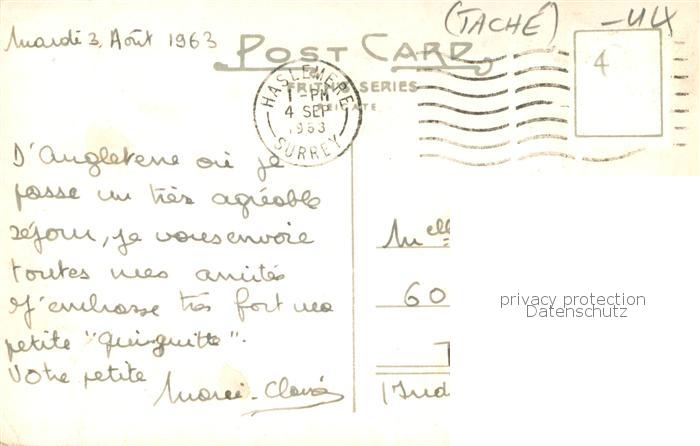 Mardi 3, Août 1963
(TACHÉ)
POST CARD
FRITH'S SERIES
HASLEMERE
1-PM
4 SEP
1963
SURREY
4
D'Angleterre où je
passe un très agréable
séjour, je vous envoie
toutes mes amitiés
et j'embrasse très fort ma
petite
Votre petite
Marie-Claire
Melle
60
(Ind
privacy protection
Datenschutz